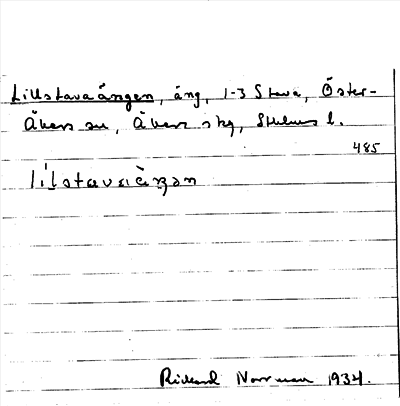 Lillstavaängen, äng, 1-3 Stava, Öster-
Åkers sn, Åkers skg, Sthlms l.
485
lílstavaàŋən
Rickard Norrman 1934.